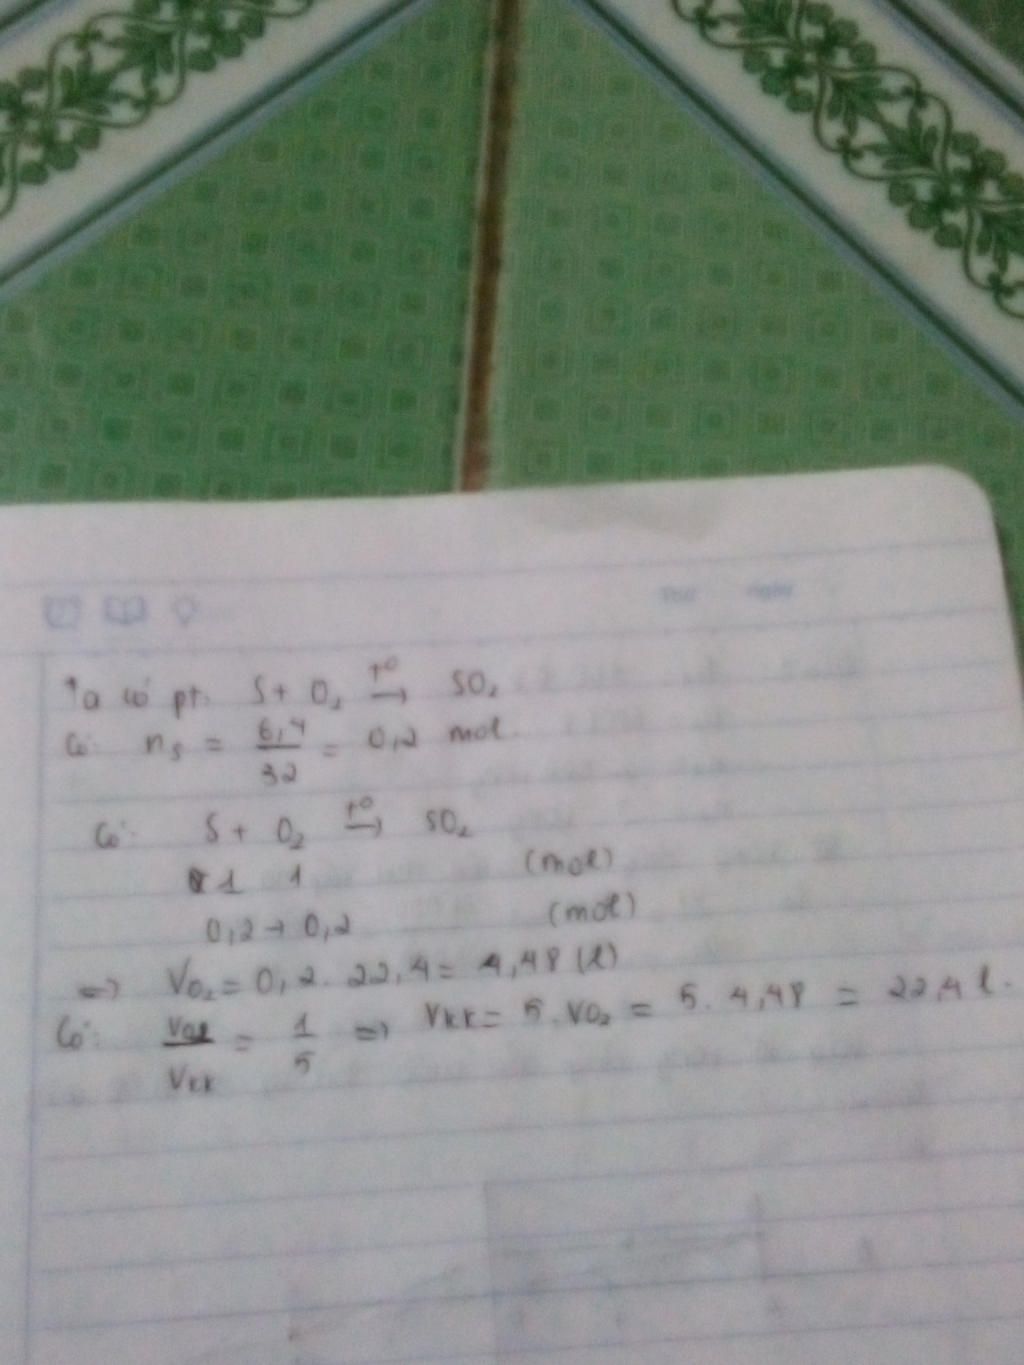 Thứ ngày
Ta có pt: S + O₂ t⁰→ SO₂
Có: nₛ = 6,4/32 = 0,2 mol.
Có: S + O₂ t⁰→ SO₂
1 1 (mol)
0,2 → 0,2 (mol)
=> VO₂ = 0,2. 22,4 = 4,48 (l)
Có: VO2/Vkk = 1/5 => Vkk = 5.VO₂ = 5. 4,48 = 22,4 l.